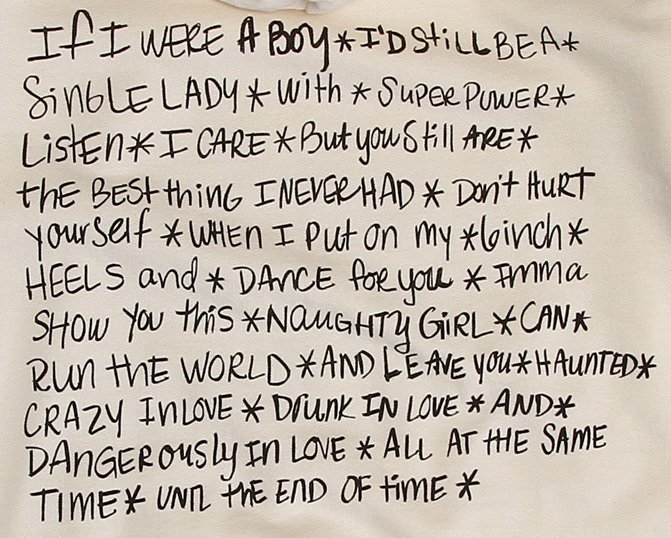 If I WERE A BOY * I'D StiLL BE A *
SinGLE LADY * with * SUPERPOWER *
ListEn * I CARE * But you Still ARE *
thE BESt thing I NEVER HAD * Don't HURT
yourself * WHEN I Put on my * 6inch *
HEELS and * DANCE for you * Imma
SHOW You this * NAUGHTy GiRL * CAN *
RUN thE WORLD * AND LEAVE you * HAUNTED *
CRAZY InLOVE * Drunk IN LOVE * AND *
DAnGERously In LOVE * ALL AT tHE SAME
TIME * UNTIL thE END OF time *